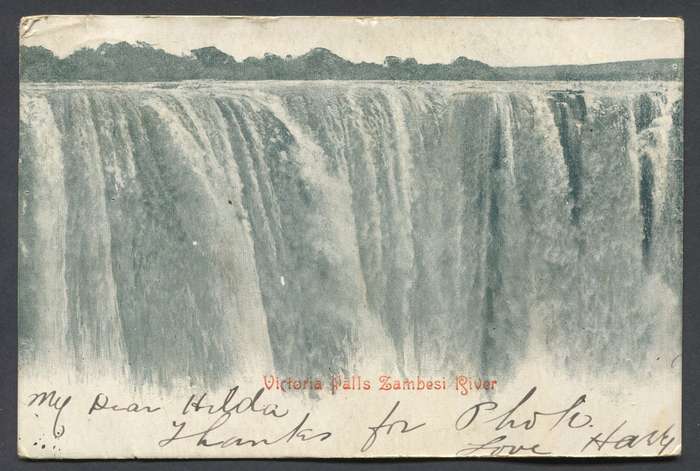 Victoria Falls Zambesi River
My Dear Hilda
Thanks for Photo.
Love Harry